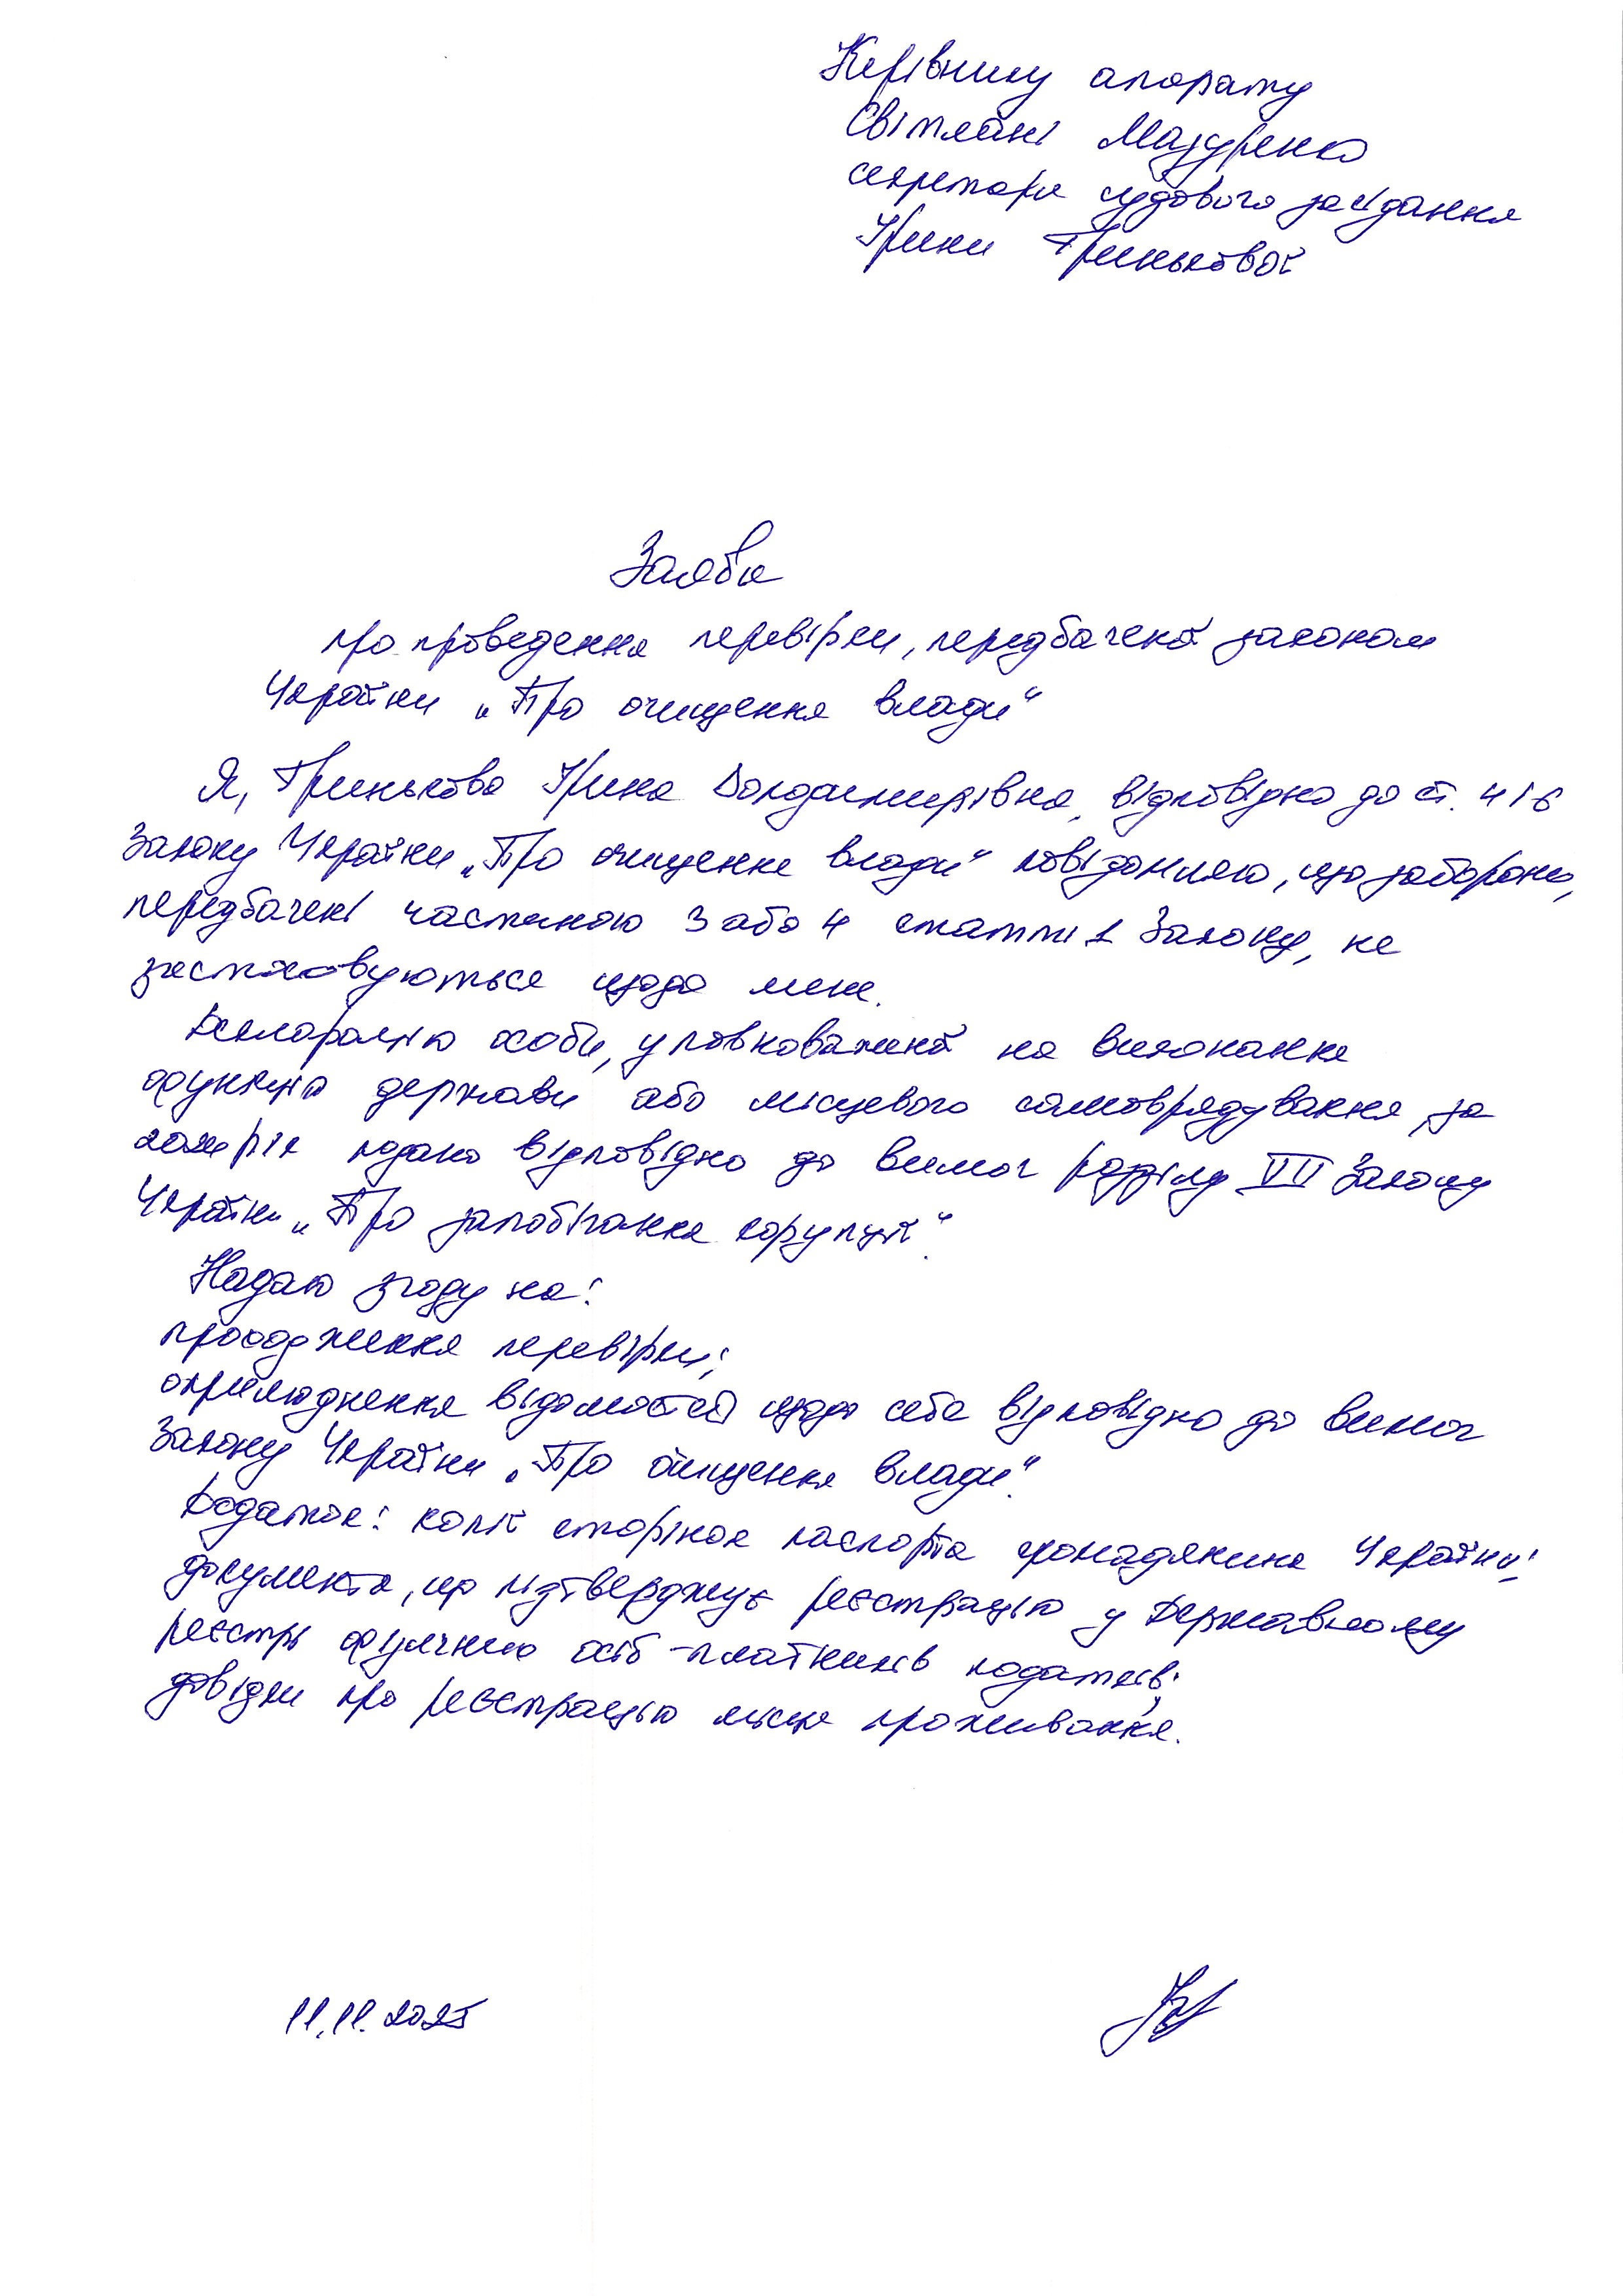 Керівнику апарату
Світлані Мазуренко
секретаря судового засідання
Ірини Гринькової
Заява
про проведення перевірки, передбаченої законом
України „Про очищення влади“
Я, Гринькова Ірина Володимирівна, відповідно до ст. 4 і 6
Закону України „Про очищення влади“ повідомляю, що заборони,
передбачені частиною 3 або 4 статті 1 Закону, не
застосовуються щодо мене.
Декларацію особи, уповноваженої на виконання
функцій держави або місцевого самоврядування, за
рік подано відповідно до вимог розділу VII Закону
України „Про запобігання корупції“.
Надаю згоду на:
проходження перевірки;
оприлюднення відомостей щодо себе відповідно до вимог
Закону України „Про очищення влади“.
Додаток: копії сторінок паспорта громадянина України;
документа, що підтверджує реєстрацію у Державному
реєстрі фізичних осіб-платників податків;
довідки про реєстрацію місця проживання.
11.11.2025